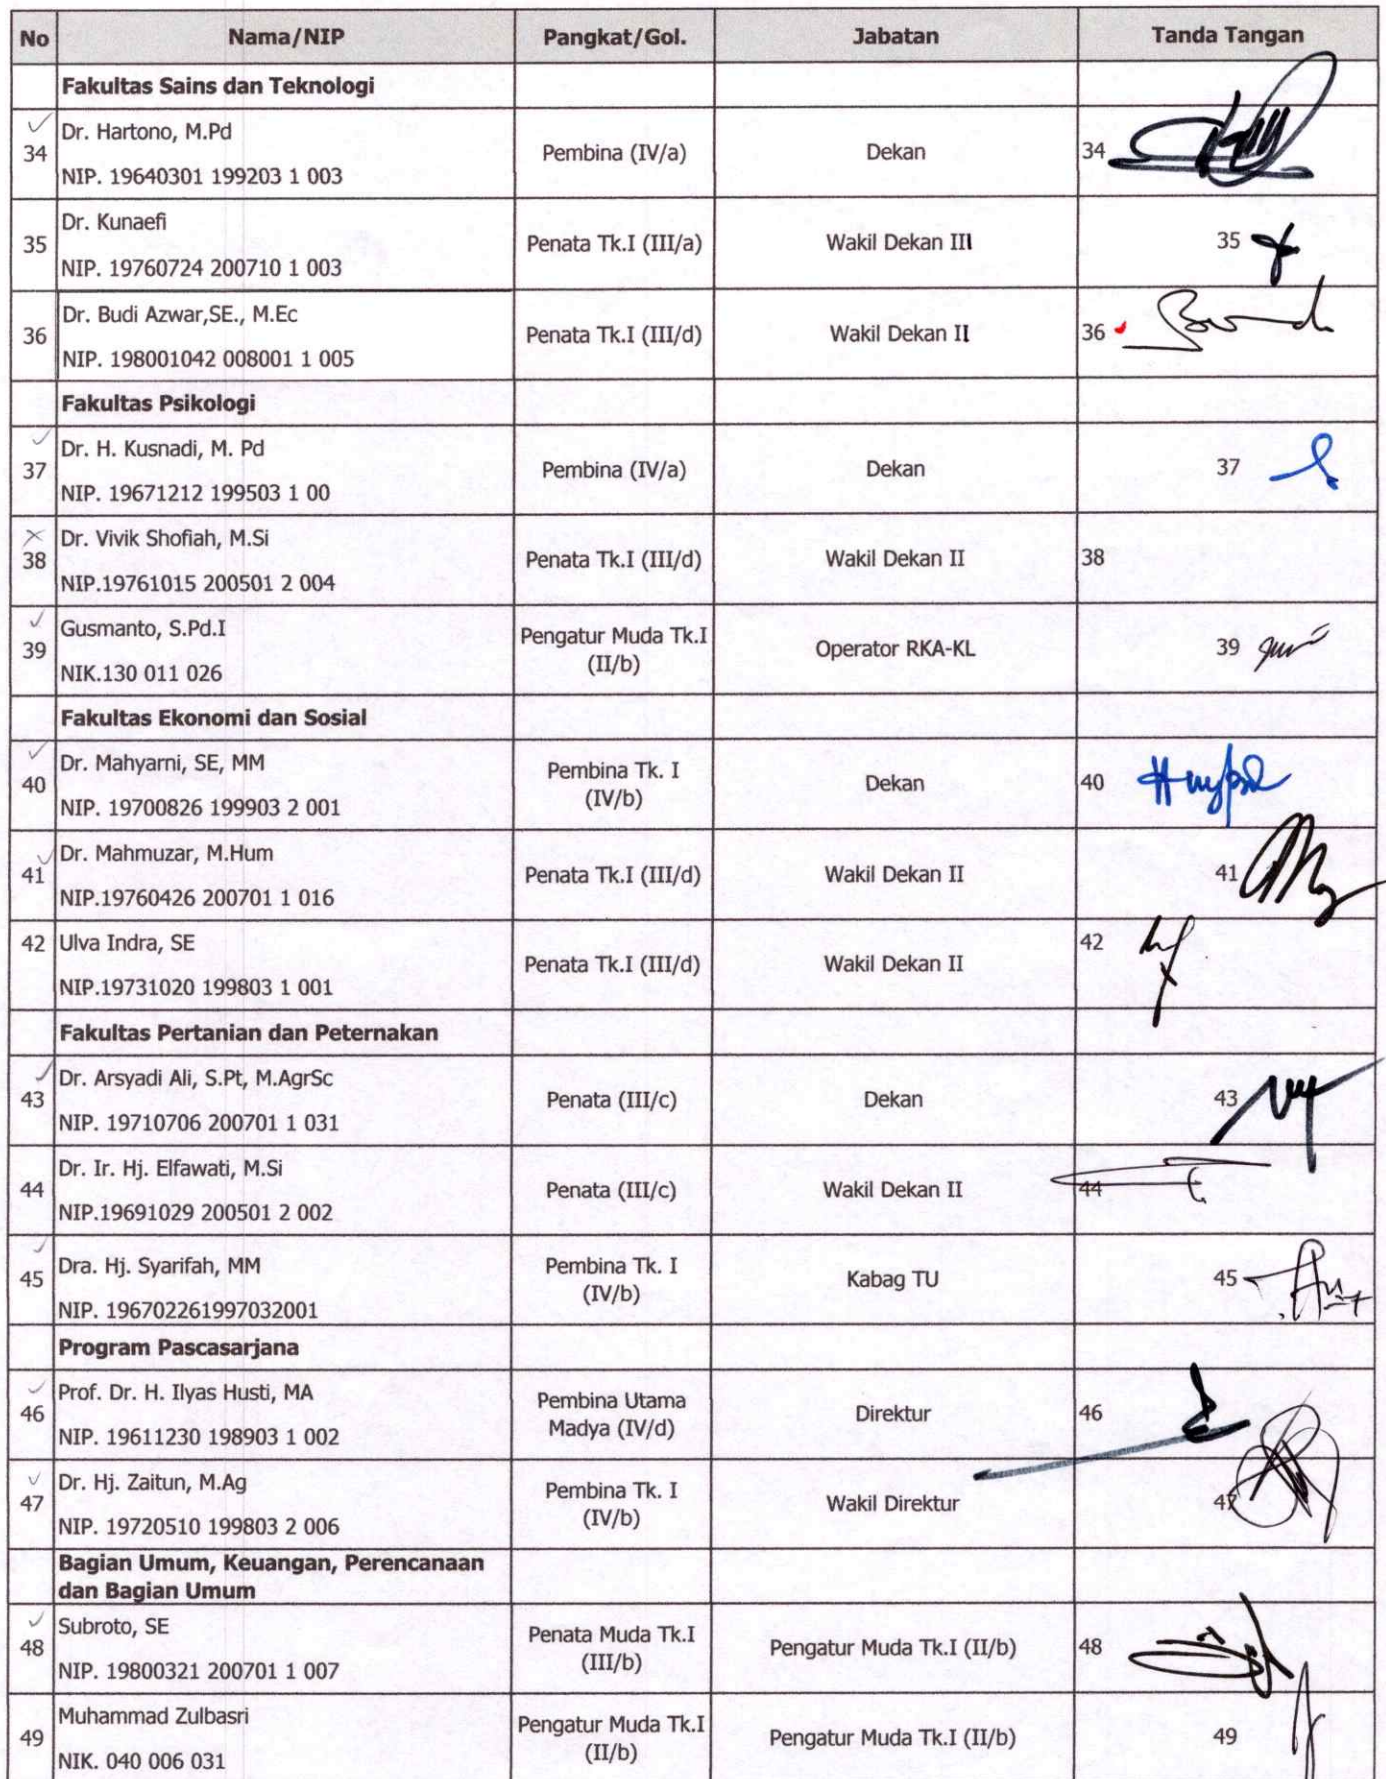 No Nama/NIP Pangkat/Gol. Jabatan Tanda Tangan
Fakultas Sains dan Teknologi
34 Dr. Hartono, M.Pd
NIP. 19640301 199203 1 003
Pembina (IV/a) Dekan 34
35 Dr. Kunaefi
NIP. 19760724 200710 1 003
Penata Tk.I (III/a) Wakil Dekan III 35
36 Dr. Budi Azwar,SE., M.Ec
NIP. 198001042 008001 1 005
Penata Tk.I (III/d) Wakil Dekan II 36
Fakultas Psikologi
37 Dr. H. Kusnadi, M. Pd
NIP. 19671212 199503 1 00
Pembina (IV/a) Dekan 37
38 Dr. Vivik Shofiah, M.Si
NIP.19761015 200501 2 004
Penata Tk.I (III/d) Wakil Dekan II 38
39 Gusmanto, S.Pd.I
NIK.130 011 026
Pengatur Muda Tk.I
(II/b)
Operator RKA-KL 39
Fakultas Ekonomi dan Sosial
40 Dr. Mahyarni, SE, MM
NIP. 19700826 199903 2 001
Pembina Tk. I
(IV/b)
Dekan 40
41 Dr. Mahmuzar, M.Hum
NIP.19760426 200701 1 016
Penata Tk.I (III/d) Wakil Dekan II 41
42 Ulva Indra, SE
NIP.19731020 199803 1 001
Penata Tk.I (III/d) Wakil Dekan II 42
Fakultas Pertanian dan Peternakan
43 Dr. Arsyadi Ali, S.Pt, M.AgrSc
NIP. 19710706 200701 1 031
Penata (III/c) Dekan 43
44 Dr. Ir. Hj. Elfawati, M.Si
NIP.19691029 200501 2 002
Penata (III/c) Wakil Dekan II 44
45 Dra. Hj. Syarifah, MM
NIP. 196702261997032001
Pembina Tk. I
(IV/b)
Kabag TU 45
Program Pascasarjana
46 Prof. Dr. H. Ilyas Husti, MA
NIP. 19611230 198903 1 002
Pembina Utama
Madya (IV/d)
Direktur 46
47 Dr. Hj. Zaitun, M.Ag
NIP. 19720510 199803 2 006
Pembina Tk. I
(IV/b)
Wakil Direktur 47
Bagian Umum, Keuangan, Perencanaan
dan Bagian Umum
48 Subroto, SE
NIP. 19800321 200701 1 007
Penata Muda Tk.I
(III/b)
Pengatur Muda Tk.I (II/b) 48
49 Muhammad Zulbasri
NIK. 040 006 031
Pengatur Muda Tk.I
(II/b)
Pengatur Muda Tk.I (II/b) 49